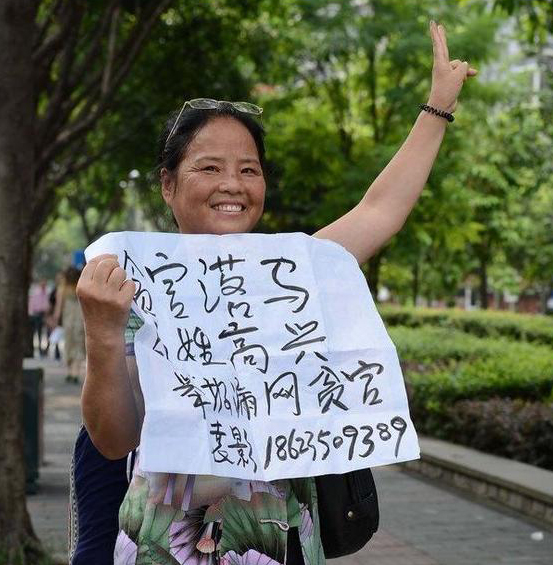 贪官落马
百姓高兴
举报漏网贪官
袁影 18623509389